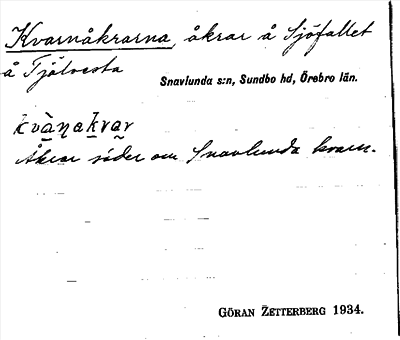 Kvarnåkrarna, åkrar å Sjöfallet
å Tjälvesta
Snavlunda s:n, Sundbo hd, Örebro län.
Åkrar söder om Snavlunda kvarn.
GÖRAN ZETTERBERG 1934.